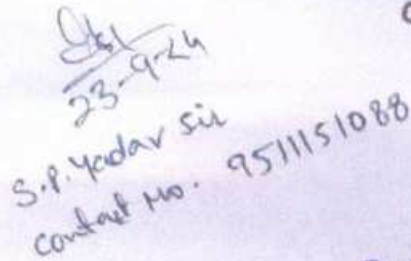 23-9-24
S.P. Yadav Sir
contact No. 9511151088